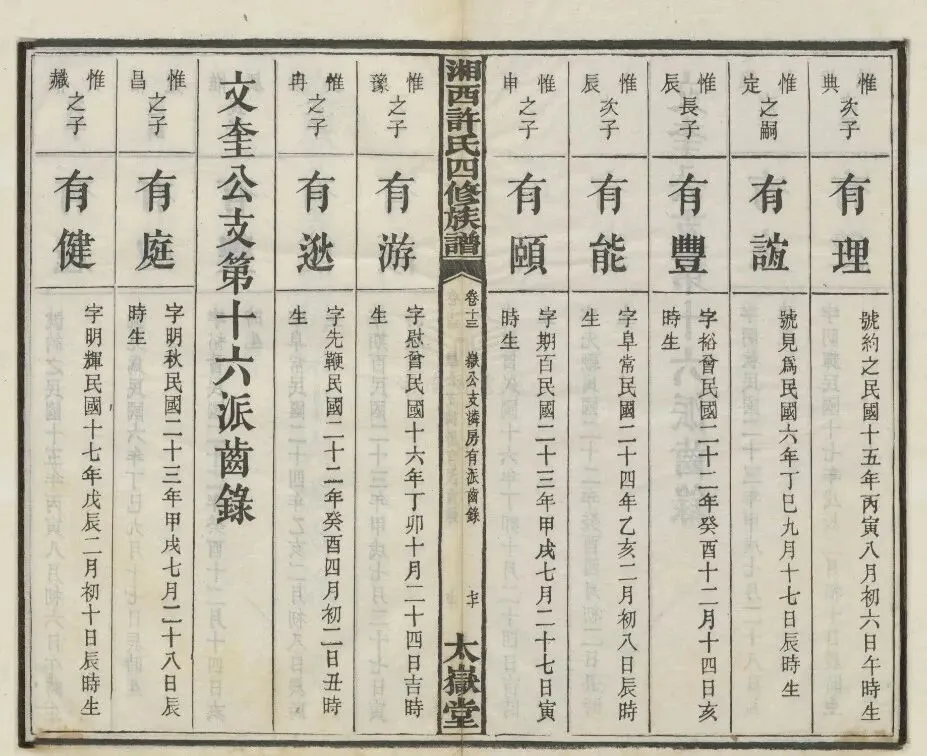 惟典次子
有理
號約之民國十五年丙寅八月初六日午時生
惟定之嗣
有誼
號見爲民國六年丁巳九月十七日辰時生
惟辰長子
有豐
字裕曾民國二十二年癸酉十二月十四日亥
時生
惟辰次子
有能
字阜常民國二十四年乙亥二月初八日辰時
生
惟申之子
有頤
字期百民國二十三年甲戌七月二十七日寅
時生
湘西許氏四修族譜
卷十三
嶽公支憐房有派齒錄
七十
太嶽堂
惟豫之子
有游
字慰曾民國十六年丁卯十月二十四日吉時
生
惟冉之子
有逖
字先鞭民國二十二年癸酉四月初二日丑時
生
文奎公支第十六派齒錄
惟昌之子
有庭
字明秋民國二十三年甲戌七月二十八日辰
時生
惟藏之子
有健
字明輝民國十七年戊辰二月初十日辰時生